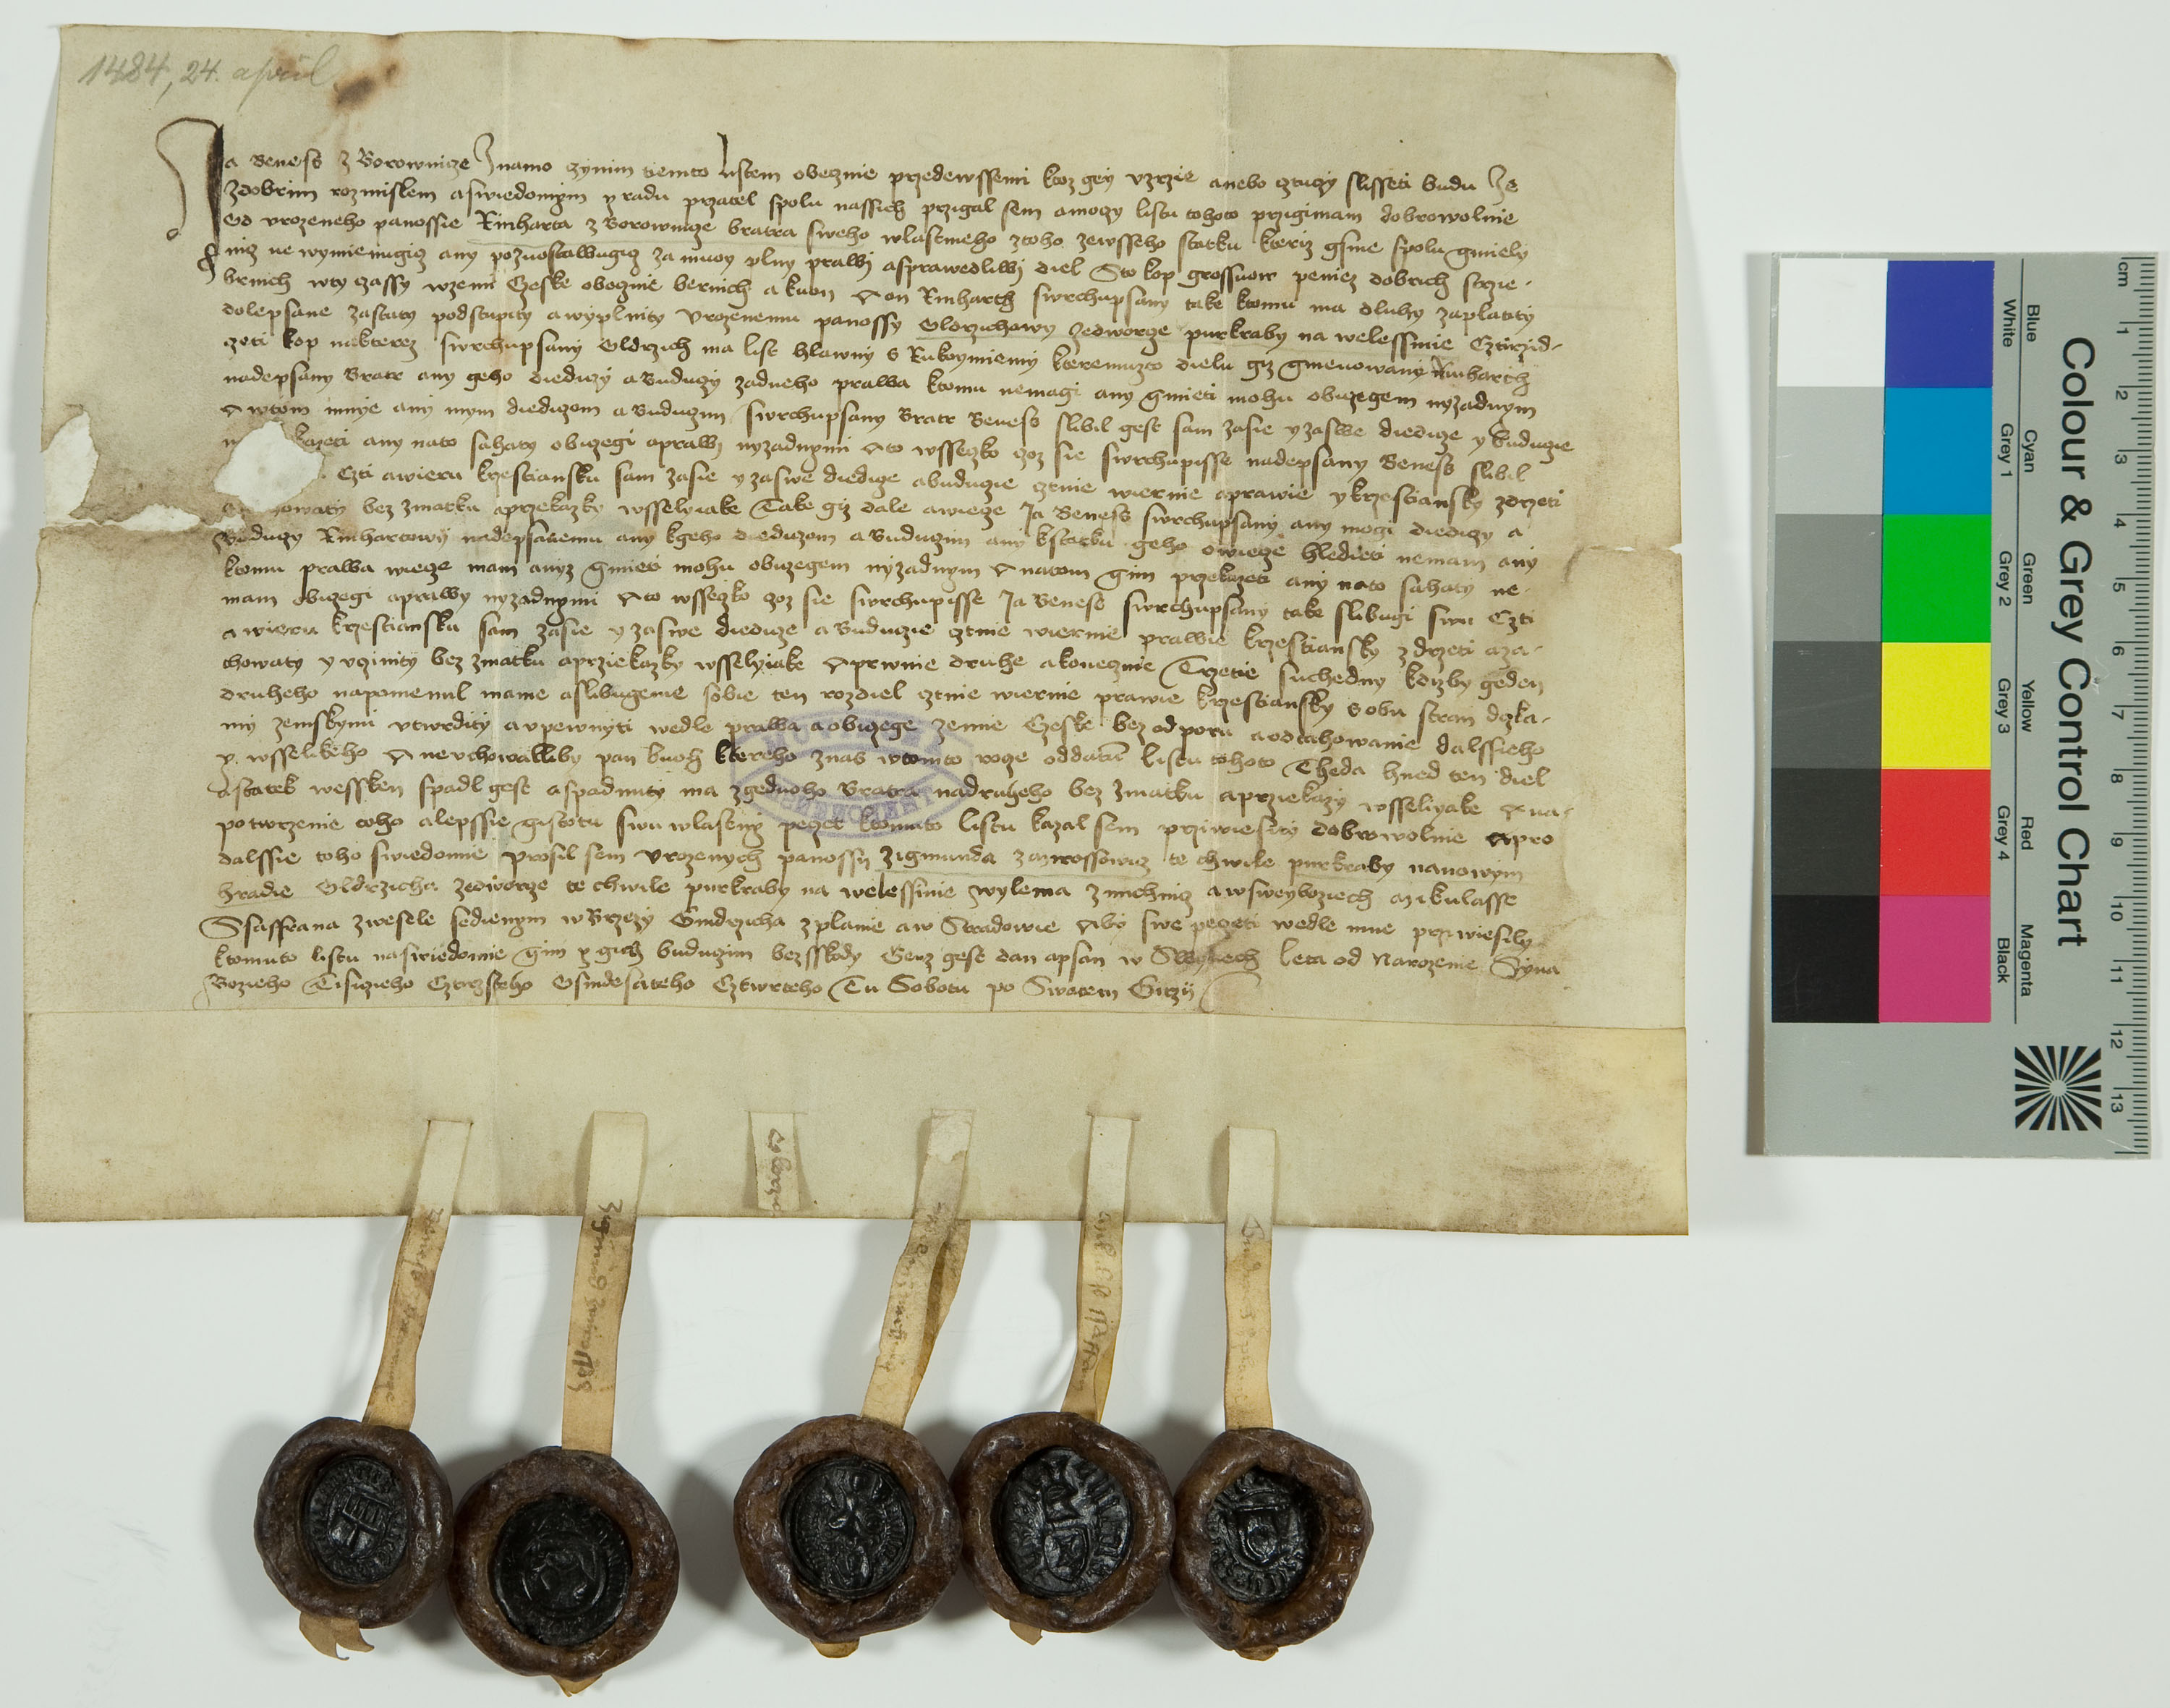 1484, 24. april
Ja Beness z Borownicze Znamo czynim tiemto listem obecznie przedewssemi ktoz gey vzrzie anebo cztuczy slisseti budu Ze
zdobrim rozmislem aswiedomym y radu przatel spolu nassich przigal sem amoczy listu tohoto przigimam dobrowolnie
Od vrozeneho panossie Rinharta z Borownicze bratra sweho wlastneho ztoho zewsseho statku kteriz gsme spolu gmiely
nicz ne wymienugicz any pozuostawugicz za muoy plny prawy asprawedliwy diel Sto kop grossuow peniez dobrich strzie-
brnich wty czassy wzemi Czeske obecznie bernich A kuon A on Rinharth swrchupsany take ktomu ma dluhy zaplatity
dolepsane zastaty podstupity awyplnity Vrozenemu panossy Oldrzichowy zedworcze purkraby na welessinie Cztirzid-
zeti kop nakterez swrchupsany Oldrzich ma list hlawny s Rukoymiemy kteremuzto dielu giz gmenowany Rinharth
nadepsany Bratr any geho diediczy abuduczy zadneho prawa ktomu nemagi any gmieti mohu obyczegem nyzadnym
A wtom mnye any mym diediczom abuduczim swrchupsany Bratr Beness slibil gest sam zasie yzaswe diedicze y buduczie
kazeti any nato sahaty obyczegi aprawy nyzadnymi A to wsseczko czoz sie swrchupisse nadepsany Beness slibil
Czti awieru krzestiansku sam zasie yzaswe diedicze abuduczie cztnie wiernie aprawie ykrzestiansky zdrzeti
owaty bez zmatku aprzekazky wsselyiake Take giz dale awiecze Ja Beness swrchupsany any mogi diediczy a
Buduczy Rinhartowy nadepsanemu any kgeho diediczom abuduczim any kstatku geho owiecze hledieti nemam any
ktomu prawa wiecze mam anyz gmieti mohu obyczegem nyzadnym A natom gim przekazeti any nato sahaty ne-
mam obyczegi aprawy nyzadnymi A to wsseczko czoz sie swrchupisse Ja Beness swrchupsany take slibugi swu Czti
awieru krzestiansku sam zasie yzaswe diedicze abuduczie cztnie wiernie prawie krzestiansky zdrzeti aza-
chowaty y vczinity bez zmatku aprziekazky wsselyiake A prwnie druhe akonecznie Trzetie suchedny kdizby geden
druheho napomenul mame aslibugeme sobie ten rozdiel cztnie wiernie prawie krzestiansky sobu stran dska-
my zemskymi vtwrdity avpewnyti wedle prawa aobyczege zemie Czeske bez odporu aodtahowanie dalssieho
y wsselikeho A nevchowalliby pan buoh ktereho znas wtomto rocze oddatum listu tohoto Theda hned ten diel
astatek wessken spadl gest aspadnuty ma zgednoho Bratra nadruheho bez zmatku aprziekazy wsseliyake A na-
potwrzenie toho alepssie gistotu swu wlastny peczet ktomuto listu kazal sem prziwiesity dobrowolnie Apro
dalssie toho swiedomie Prosil sem Vrozenych panossy Zigmunda te chwile purkraby nanowym
hradie Oldrzicha zedworze te chwile purkraby na welessinie wylema zmichnicz
Ssafftana zwesele sedienym wBrzezy Gindrzicha zplanie aw Stradowie Aby swe peczeti wedle mne prziwiesily
ktomuto listu naswiedomie gim y gich buduczim bezsskody Genz gest dan apsan w Leta od Narozenie Syna
Bozieho Tisiczieho Cztyrsteho Osmdesateho Cztwrteho Tu Sobotu po Swatem Girzy
Colour & Grey Control Chart
Blue Cyan Green Yellow Red Magenta
White Grey 1 Grey 2 Grey 3 Grey 4 Black
cm 1 2 3 4 5 6 7 8 9 10 11 12 13